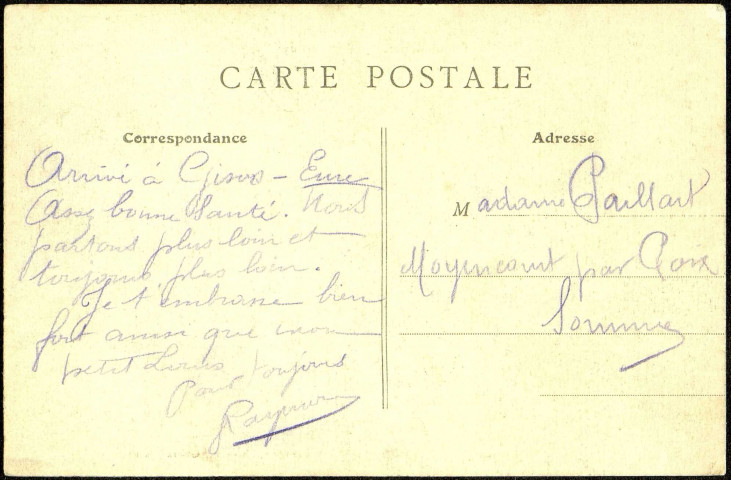 CARTE POSTALE
Correspondance
Arrivé à Gisors - Eure
Assez bonne Santé. Nous
partons plus loin et
toujours plus loin.
Je t'embrasse bien
fort ainsi que mon
petit Louis
Pour toujours
Adresse
Madame Paillart
Moyencourt par Poix
Somme